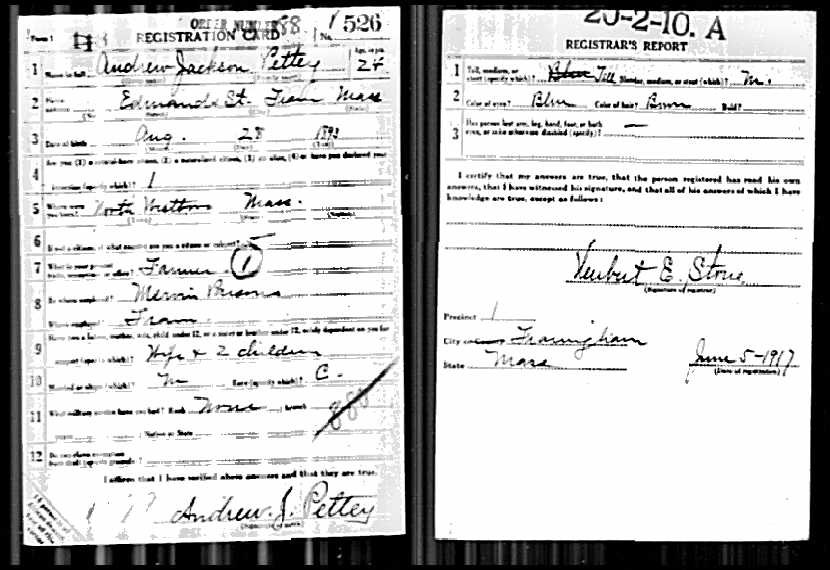 Form 1
ORDER NUMBER 88
REGISTRATION CARD
No. 526
1 Name in full Andrew Jackson Pettey
Age, in yrs. 24
2 Home address Edmands St. Fram Mass
3 Date of birth Aug. 28 1892
4 Are you (1) a natural-born citizen, (2) a naturalized citizen, (3) an alien, (4) or have you declared your
intention (specify which)? 1
5 Where were you born? North Mass.
6 If not a citizen, of what country are you a citizen or subject?
7 What is your present trade, occupation, or office? Farmer 1
8 By whom employed?
Where employed? Fram
9 Have you a father, mother, wife, child under 12, or a sister or brother under 12, solely dependent on you for
support (specify which)? Wife + 2 children
10 Married or single (which)? M Race (specify which)? C.
11 What military service have you had? Rank None branch
years Nation or State
12 Do you claim exemption from draft (specify grounds)?
I affirm that I have verified above answers and that they are true.
Andrew. J. Pettey
(Signature or mark)
888
20-2-10. A
REGISTRAR'S REPORT
1 Tall, medium, or short (specify which)? Tall Slender, medium, or stout (which)? M.
2 Color of eyes? Blue Color of hair? Brown Bald?
3 Has person lost arm, leg, hand, foot, or both eyes, or is he otherwise disabled (specify)? —
I certify that my answers are true, that the person registered has read his own
answers, that I have witnessed his signature, and that all of his answers of which I have
knowledge are true, except as follows:
E. Stone
(Signature of registrar)
Precinct 1
City or County Framingham
State Mass
June 5-1917
(Date of registration)